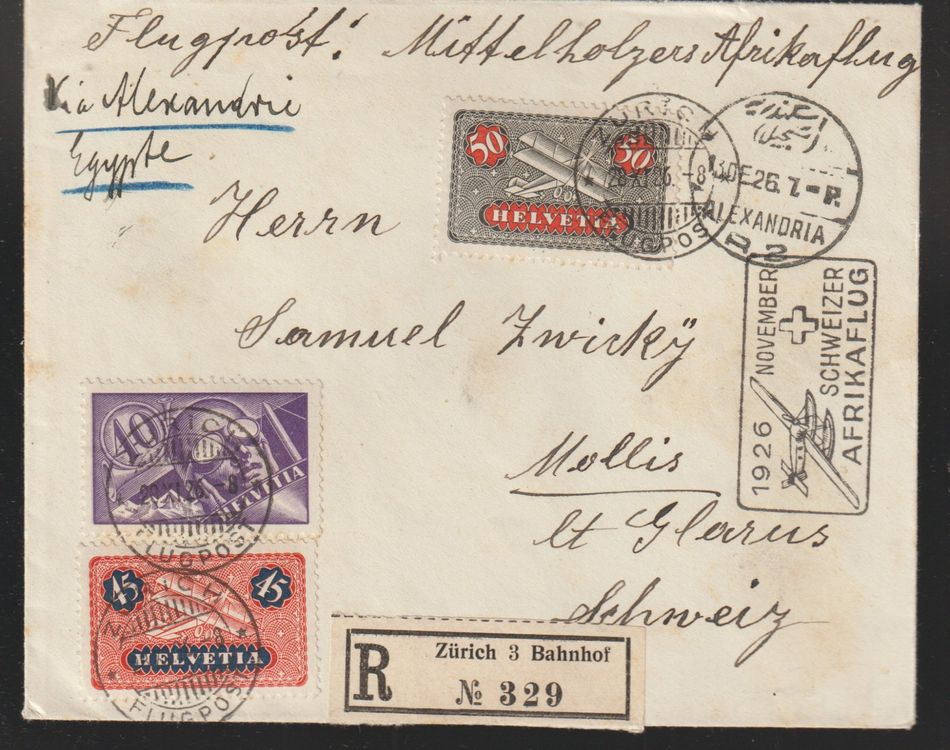 Flugpost: Mittelholzers Afrikaflug
Via Alexandrie
Egypte
Herrn
Samuel Zwicky
Mollis
Kt Glarus
Schweiz
50 50
HELVETIA
ZÜRICH
28.XI.26.-8
FLUGPOST
13 DE 26. 7.-P.
ALEXANDRIA
R 2
1926 NOVEMBER
SCHWEIZER
AFRIKAFLUG
40
HELVETIA
ZÜRICH
28.XI.26.-8
FLUGPOST
45 45
HELVETIA
ZÜRICH
FLUGPOST
R
Zürich 3 Bahnhof
№ 329